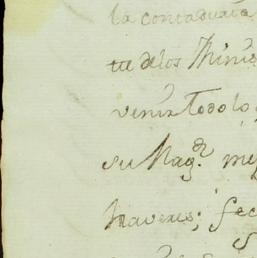 la contaduria
te de los Minis
venir todo lo
su Mag.d me
haveres; fec